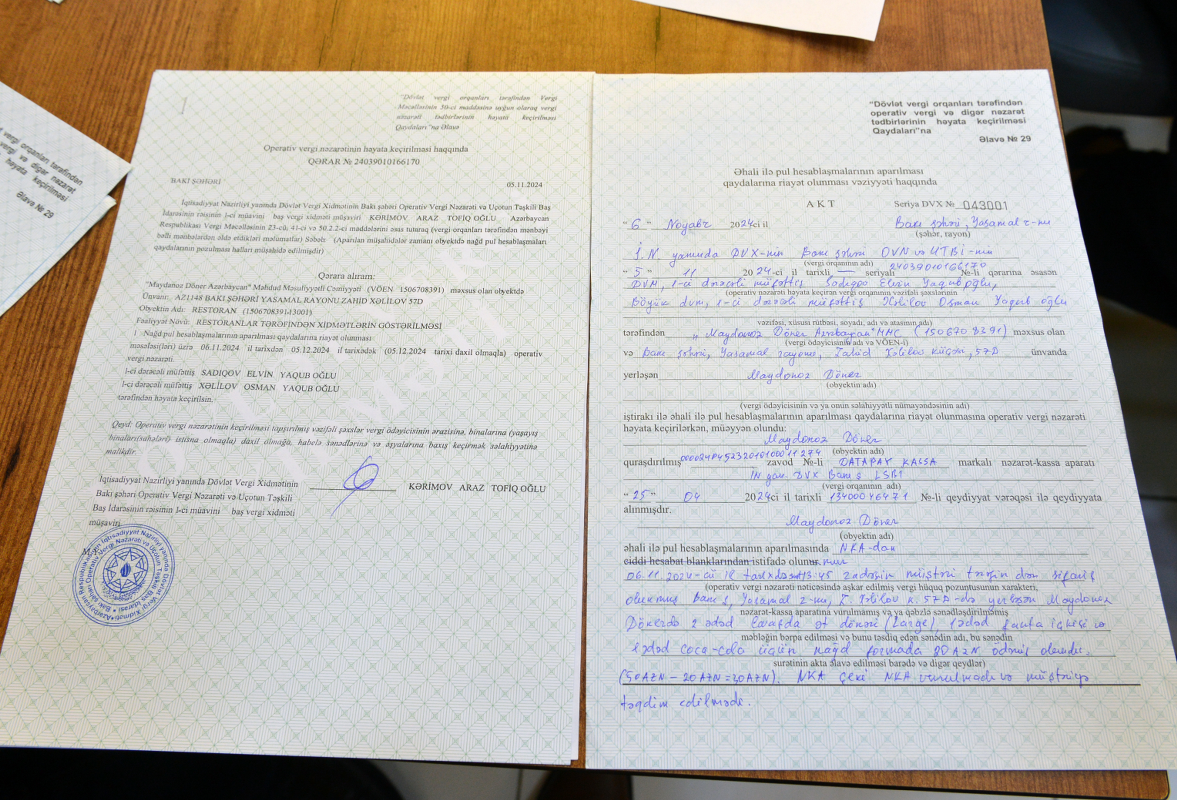 "Dövlət vergi orqanları tərəfindən Vergi
Məcəlləsinin 50-ci maddəsinə uyğun olaraq vergi
nəzarəti tədbirlərinin həyata keçirilməsi
Qaydaları"na Əlavə
Operativ vergi nəzarətinin həyata keçirilməsi haqqında
QƏRAR № 24039010166170
BAKI ŞƏHƏRİ
05.11.2024
İqtisadiyyat Nazirliyi yanında Dövlət Vergi Xidmətinin Bakı şəhəri Operativ Vergi Nəzarəti və Uçotun Təşkili Baş
İdarəsinin rəisinin I-ci müavini baş vergi xidməti müşaviri KƏRİMOV ARAZ TOFİQ OĞLU Azərbaycan
Respublikası Vergi Məcəlləsinin 23-cü, 41-ci və 50.2.2-ci maddələrini əsas tutaraq (vergi orqanları tərəfindən mənbəyi
bəlli mənbələrdən əldə etdikləri məlumatlar) Səbəb: (Aparılan müşahidələr zamanı obyektdə nağd pul hesablaşmaları
qaydalarının pozulması halları müşahidə edilmişdir)
Qərara alıram:
"Maydanoz Döner Azərbaycan" Məhdud Məsuliyyətli Cəmiyyəti (VÖEN 1506708391) məxsus olan obyektdə
Ünvanı: AZ1148 BAKI ŞƏHƏRİ YASAMAL RAYONU ZAHİD XƏLİLOV 57D
Obyektin Adı: RESTORAN (1506708391-13001)
Fəaliyyət Növü: RESTORANLAR TƏRƏFİNDƏN XİDMƏTLƏRİN GÖSTƏRİLMƏSİ
1 Nağd pul hesablaşmalarının aparılması qaydalarına riayət olunması
məsələsi(ləri) üzrə 06.11.2024 il tarixdən 05.12.2024 il tarixədək (05.12.2024 tarixi daxil olmaqla) operativ
vergi nəzarəti
I-ci dərəcəli müfəttiş SADIQOV ELVİN YAQUB OĞLU
I-ci dərəcəli müfəttiş XƏLİLOV OSMAN YAQUB OĞLU
tərəfindən həyata keçirilsin.
Qeyd: Operativ vergi nəzarətinin keçirilməsi tapşırılmış vəzifəli şəxslər vergi ödəyicisinin ərazisinə, binalarına (yaşayış
binaları(sahələri) istisna olmaqla) daxil olmağa, habelə sənədlərinə və əşyalarına baxış keçirmək səlahiyyətinə
malikdir.
İqtisadiyyat Nazirliyi yanında Dövlət Vergi Xidmətinin
Bakı şəhəri Operativ Vergi Nəzarəti və Uçotun Təşkili
Baş İdarəsinin rəisinin I-ci müavini baş vergi xidməti
müşaviri
KƏRİMOV ARAZ TOFİQ OĞLU
"Dövlət vergi orqanları tərəfindən
operativ vergi və digər nəzarət
tədbirlərinin həyata keçirilməsi
Qaydaları"na
Əlavə № 29
Əhali ilə pul hesablaşmalarının aparılması
qaydalarına riayət olunması vəziyyəti haqqında
AKT Seriya DVX № 043001
"6" Noyabr 2024 cü il Bakı şəhəri, Yasamal r-nu
(şəhər, rayon)
İ.N. yanında DVX-nin Bakı şəhəri OVN və UTBİ-nin
(vergi orqanının adı)
"5" 11 2024-ci il tarixli — seriyalı 24039010166170 №-li qərarına əsasən
DVM, 1-ci dərəcəli müfəttiş Sadıqov Elvin Yaquboğlu,
(operativ nəzarəti keçirən vergi orqanının vəzifəli şəxslərinin
Böyük dvm, 1-ci dərəcəli müfəttiş Xəlilov Osman Yaqub oğlu
vəzifəsi, xüsusi rütbəsi, soyadı, adı və atasının adı)
tərəfindən "Maydonoz Döner Azərbaycan" MMC (1506708391) məxsus olan
(vergi ödəyicisinin adı və VÖEN-i)
və Bakı şəhəri, Yasamal rayonu, Zahid Xəlilov küçəsi, 57D ünvanda
yerləşən Maydonoz Döner
(obyektin adı)
(vergi ödəyicisinin və ya onun səlahiyyətli nümayəndəsinin adı)
iştirakı ilə əhali ilə pul hesablaşmalarının aparılması qaydalarına riayət olunmasına operativ vergi nəzarəti
həyata keçirilərkən, müəyyən olundu:
Maydonoz Döner
(obyektin adı)
quraşdırılmış zavod №-li DATAPAY KASSA markalı nəzarət-kassa aparatı
İN yan. DVX Bakı ş LSBİ
(vergi orqanının adı)
"25" 04 2024 ci il tarixli 13400046471 №-li qeydiyyat vərəqəsi ilə qeydiyyata
alınmışdır.
Maydonoz Döner
(obyektin adı)
əhali ilə pul hesablaşmalarının aparılmasında NKA-dan
ciddi hesabat blanklarından istifadə olunur.
06.11.2024-cü il tarixdə saat 13:45 radələrin müştəri tərəfin dən sifariş
(operativ vergi nəzarəti nəticəsində aşkar edilmiş vergi hüquq pozuntusunun xarakteri,
olunmuş Bakı ş, Yasamal r-nu, Z. Xəlilov k. 57D-də yerləşən Maydonoz
nəzarət-kassa aparatına vurulmamış və ya qəbzlə sənədləşdirilmiş
Dönerdə 2 ədəd Lavaşda ət döneri (Large), 1 ədəd fanta içkisi və
məbləğin bərpa edilməsi və bunu təsdiq edən sənədin adı, bu sənədin
1 ədəd coca-cola üçün nağd formada 20 AZN ödəniş olundu.
surətinin akta əlavə edilməsi barədə və digər qeydlər)
(50 AZN - 20 AZN = 30 AZN). NKA çeki NKA vurulmadı və müştəriyə
təqdim edilmədi.
Əlavə № 29